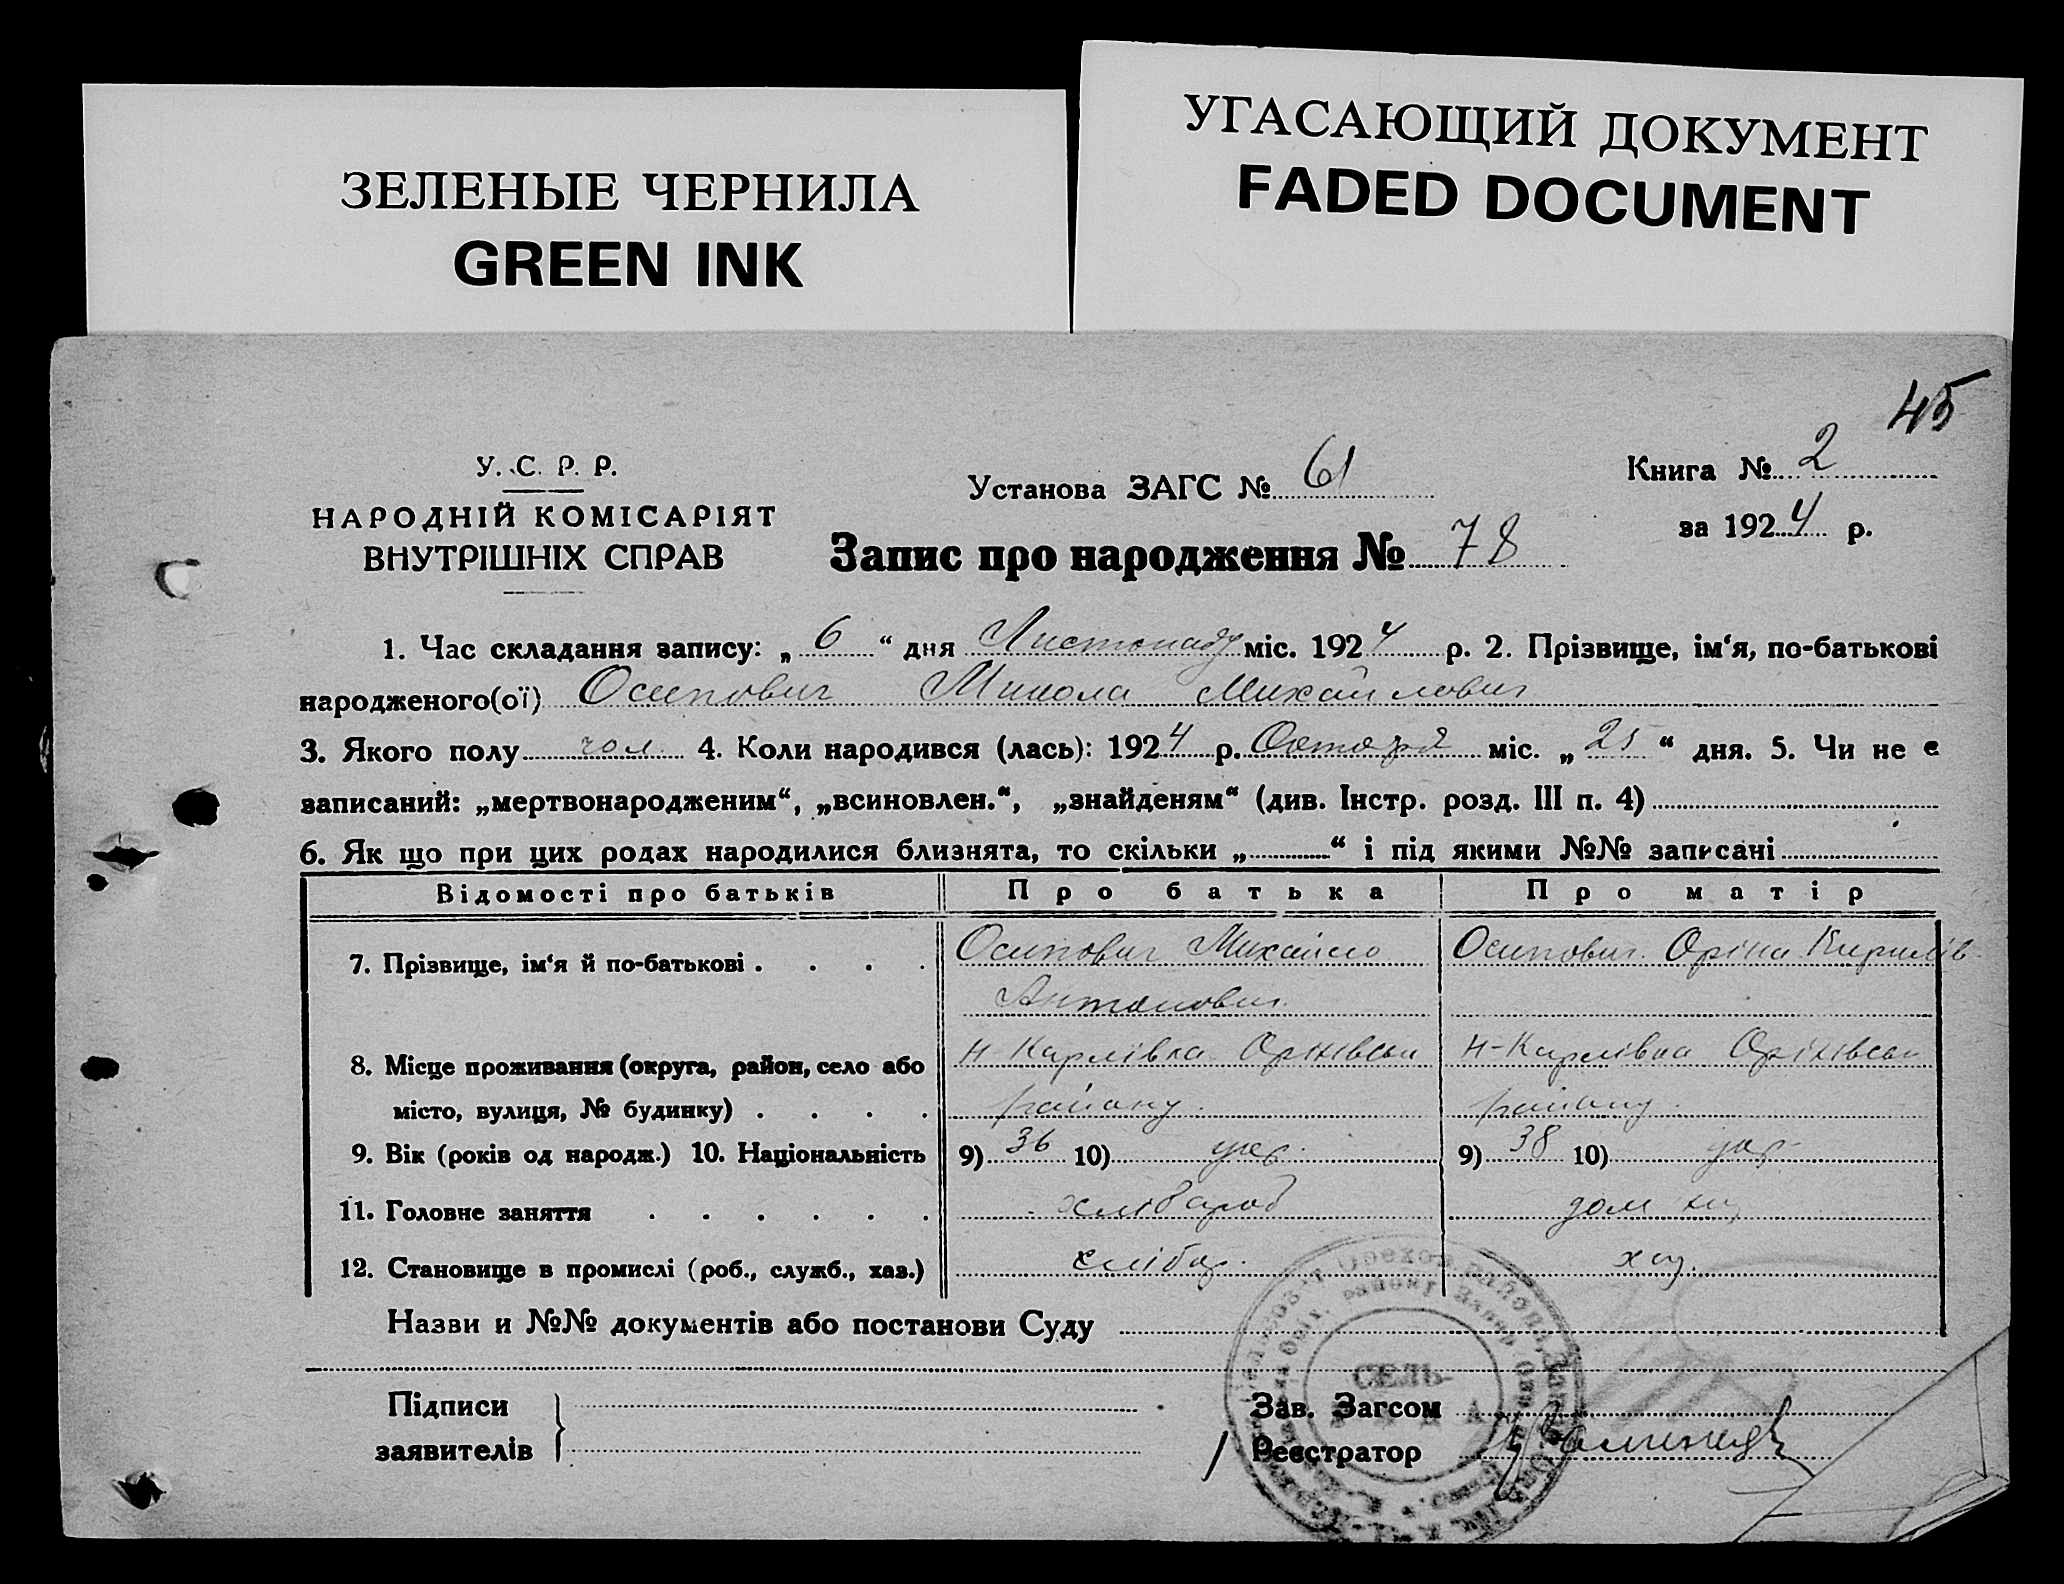 ЗЕЛЕНЫЕ ЧЕРНИЛА
GREEN INK
УГАСАЮЩИЙ ДОКУМЕНТ
FADED DOCUMENT
45
У. С. Р. Р.
НАРОДНІЙ КОМІСАРІЯТ
ВНУТРІШНІХ СПРАВ
Установа ЗАГС № 61
Книга № 2
за 1924 р.
Запис про народження № 78
1. Час складання запису: „ 6 “ дня Листопаду міс. 1924 р. 2. Прізвище, ім‘я, по-батькові
народженого(ої) Осипович Микола Михайлович
3. Якого полу чол. 4. Коли народився (лась): 1924 р. Октября міс. „ 25 “ дня. 5. Чи не є
записаний: „мертвонародженим“, „всиновлен.“, „знайденям“ (див. Інстр. розд. III п. 4)
6. Як що при цих родах народилися близнята, то скільки „ “ і під якими №№ записані
Відомості про батьків Про батька Про матір
7. Прізвище, ім‘я й по-батькові . . . . Осипович Михайло Осипович Оріна Кирилів-
Антонович
8. Місце проживання (округа, район, село або Н-Карлівка Оріхівськ Н-Карлівка Оріхівськ
місто, вулиця, № будинку) . . . . району. району.
9. Вік (років од народж.) 10. Національність 9) 36 10) укр. 9) 38 10) укр.
11. Головне заняття . . . . . . хлібороб дом
12. Становище в промислі (роб., служб., хаз.) хлібор.
Назви и №№ документів або постанови Суду
Підписи
заявителів
Зав. Загсом
Реєстратор
СЕЛЬ-